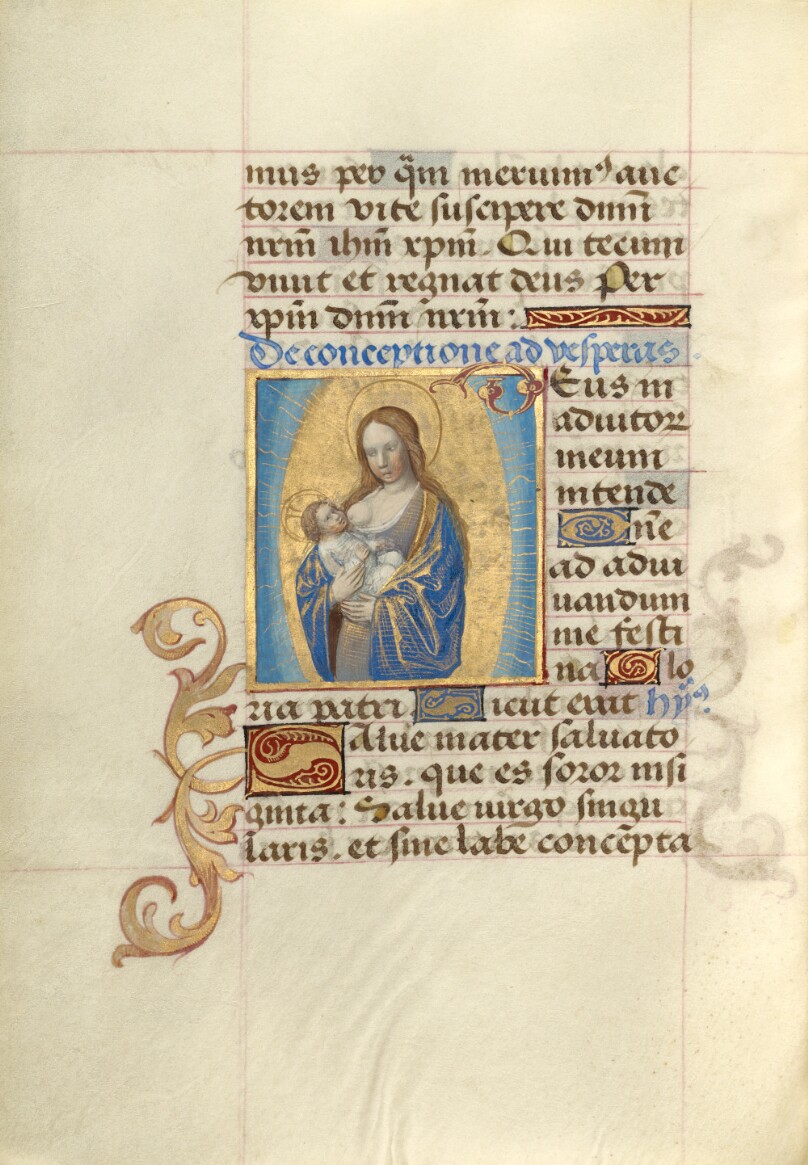 mus per q̄m meruim⁹ auc
torem vite suscipere dnm̄
nrm̄ ihm̄ xpm̄. Qui tecum
viuit et regnat deus Per
xpm̄ dnm̄ nrm̄:
De conceptione ad vesperas.
DEus in
adiutori
meum
intende
Dn̄e
ad adiu
uandum
me festi
na Glo
ria patri Sicut erat hy̅⁹.
Salue mater saluato
ris. que es soror nisi
ginta: Salue uirgo singu
laris. et sine labe concēpta